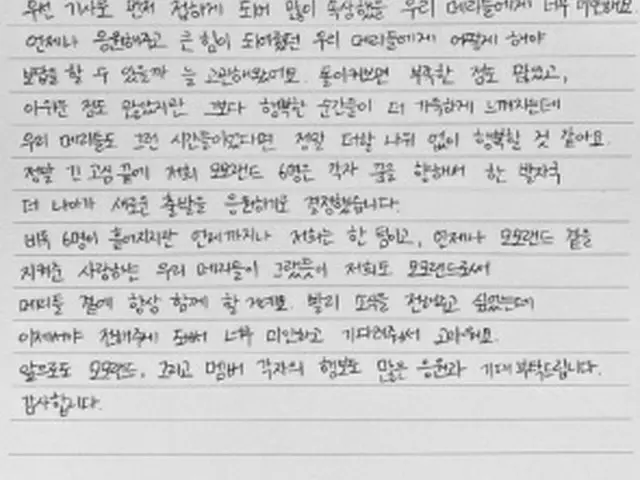 우선 기사로 먼저 접하게 되어 많이 속상했을 우리 메리들에게 너무 미안해요.
언제나 응원해주고 큰 힘이 되어줬던 우리 메리들에게 어떻게 해야
보답을 할 수 있을까 늘 고민해왔어요. 돌이켜보면 부족한 점도 많았고,
아쉬운 점도 많았지만 그보다 행복한 순간들이 더 가득하게 느껴지는데
우리 메리들도 그런 시간들이었다면 정말 더할 나위 없이 행복할 것 같아요.
정말 긴 고심 끝에 저희 모모랜드 6명은 각자 꿈을 향해서 한 발자국
더 나아가 새로운 출발을 응원하기로 결정했습니다.
비록 6명이 흩어지지만 언제까지나 저희는 한 팀이고, 언제나 모모랜드 곁을
지켜준 사랑하는 우리 메리들이 그랬듯이 저희도 모모랜드로써
메리들 곁에 항상 함께 할 거예요. 빨리 소식을 전하고 싶었는데
이제서야 전해주게 돼서 너무 미안하고 기다려줘서 고마워요.
앞으로도 모모랜드, 그리고 멤버 각자의 행보도 많은 응원과 기대 부탁드립니다.
감사합니다.